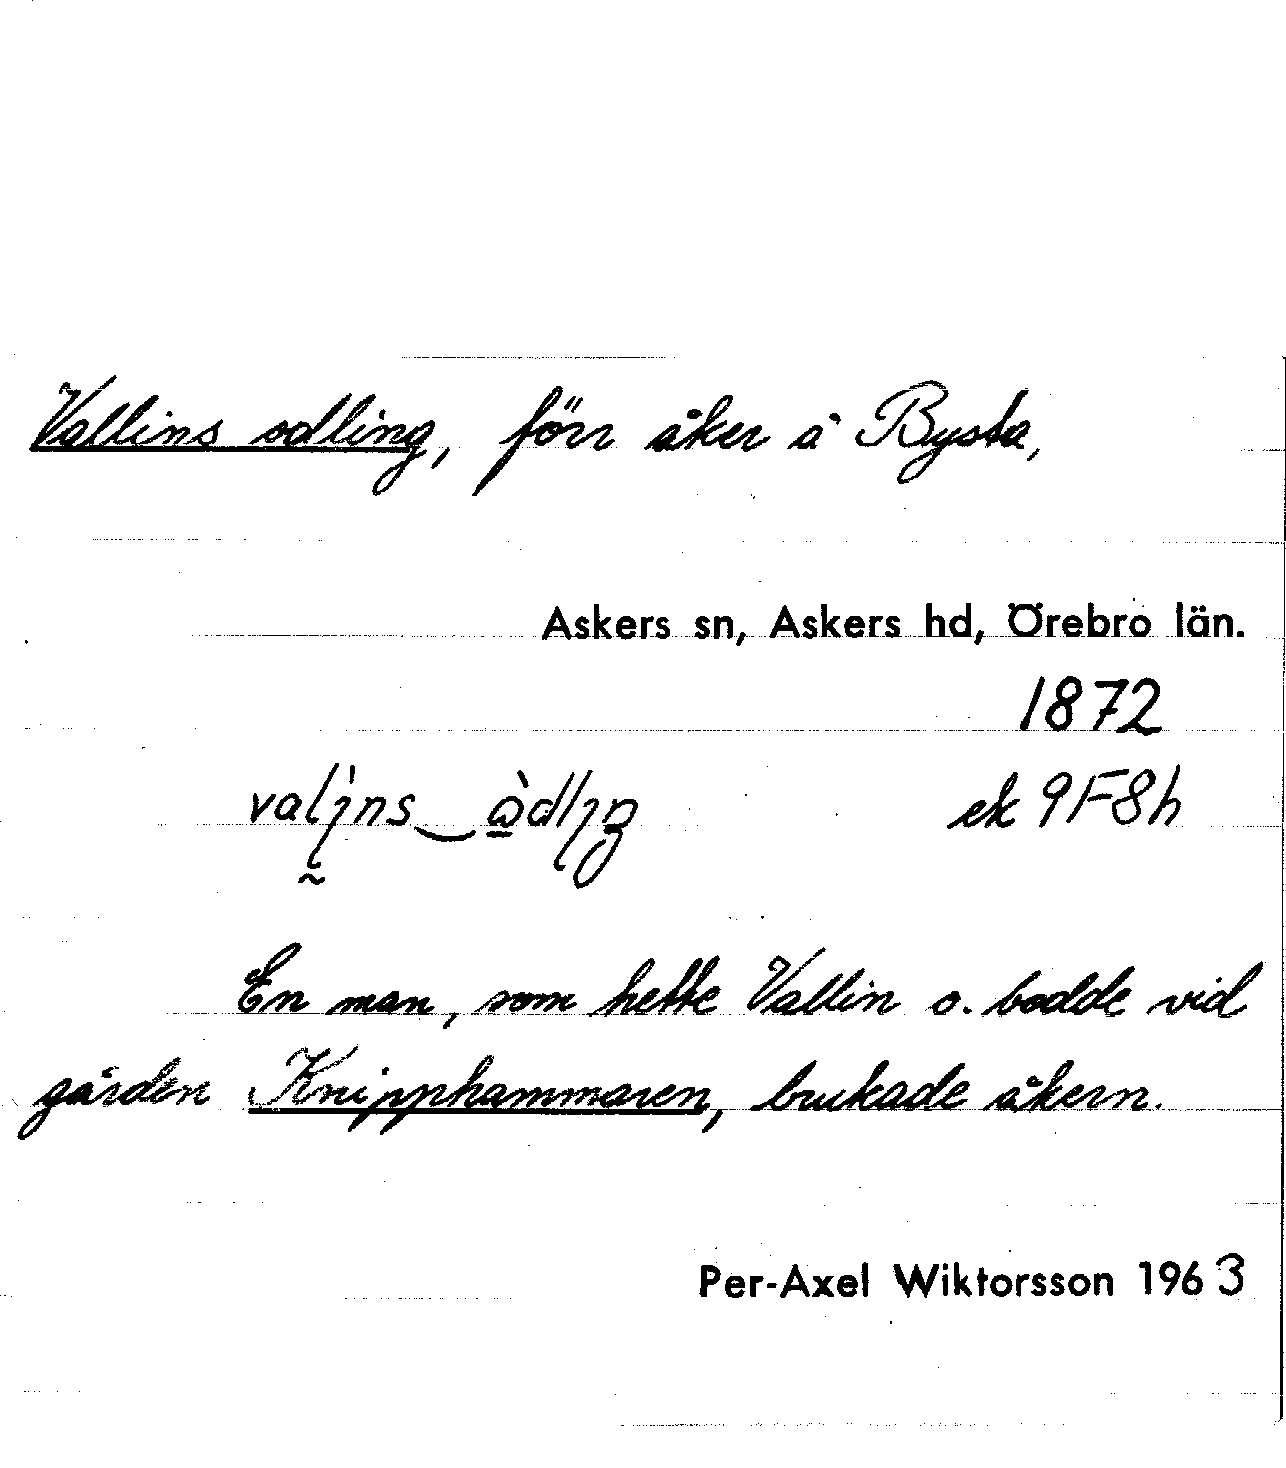 Vallins odling, förr åker å Bysta,
Askers sn, Askers hd, Örebro län.
1872
ek 9F8h
En man, som hette Vallin o. bodde vid
gården Knipphammaren, brukade åkern.
Per-Axel Wiktorsson 1963